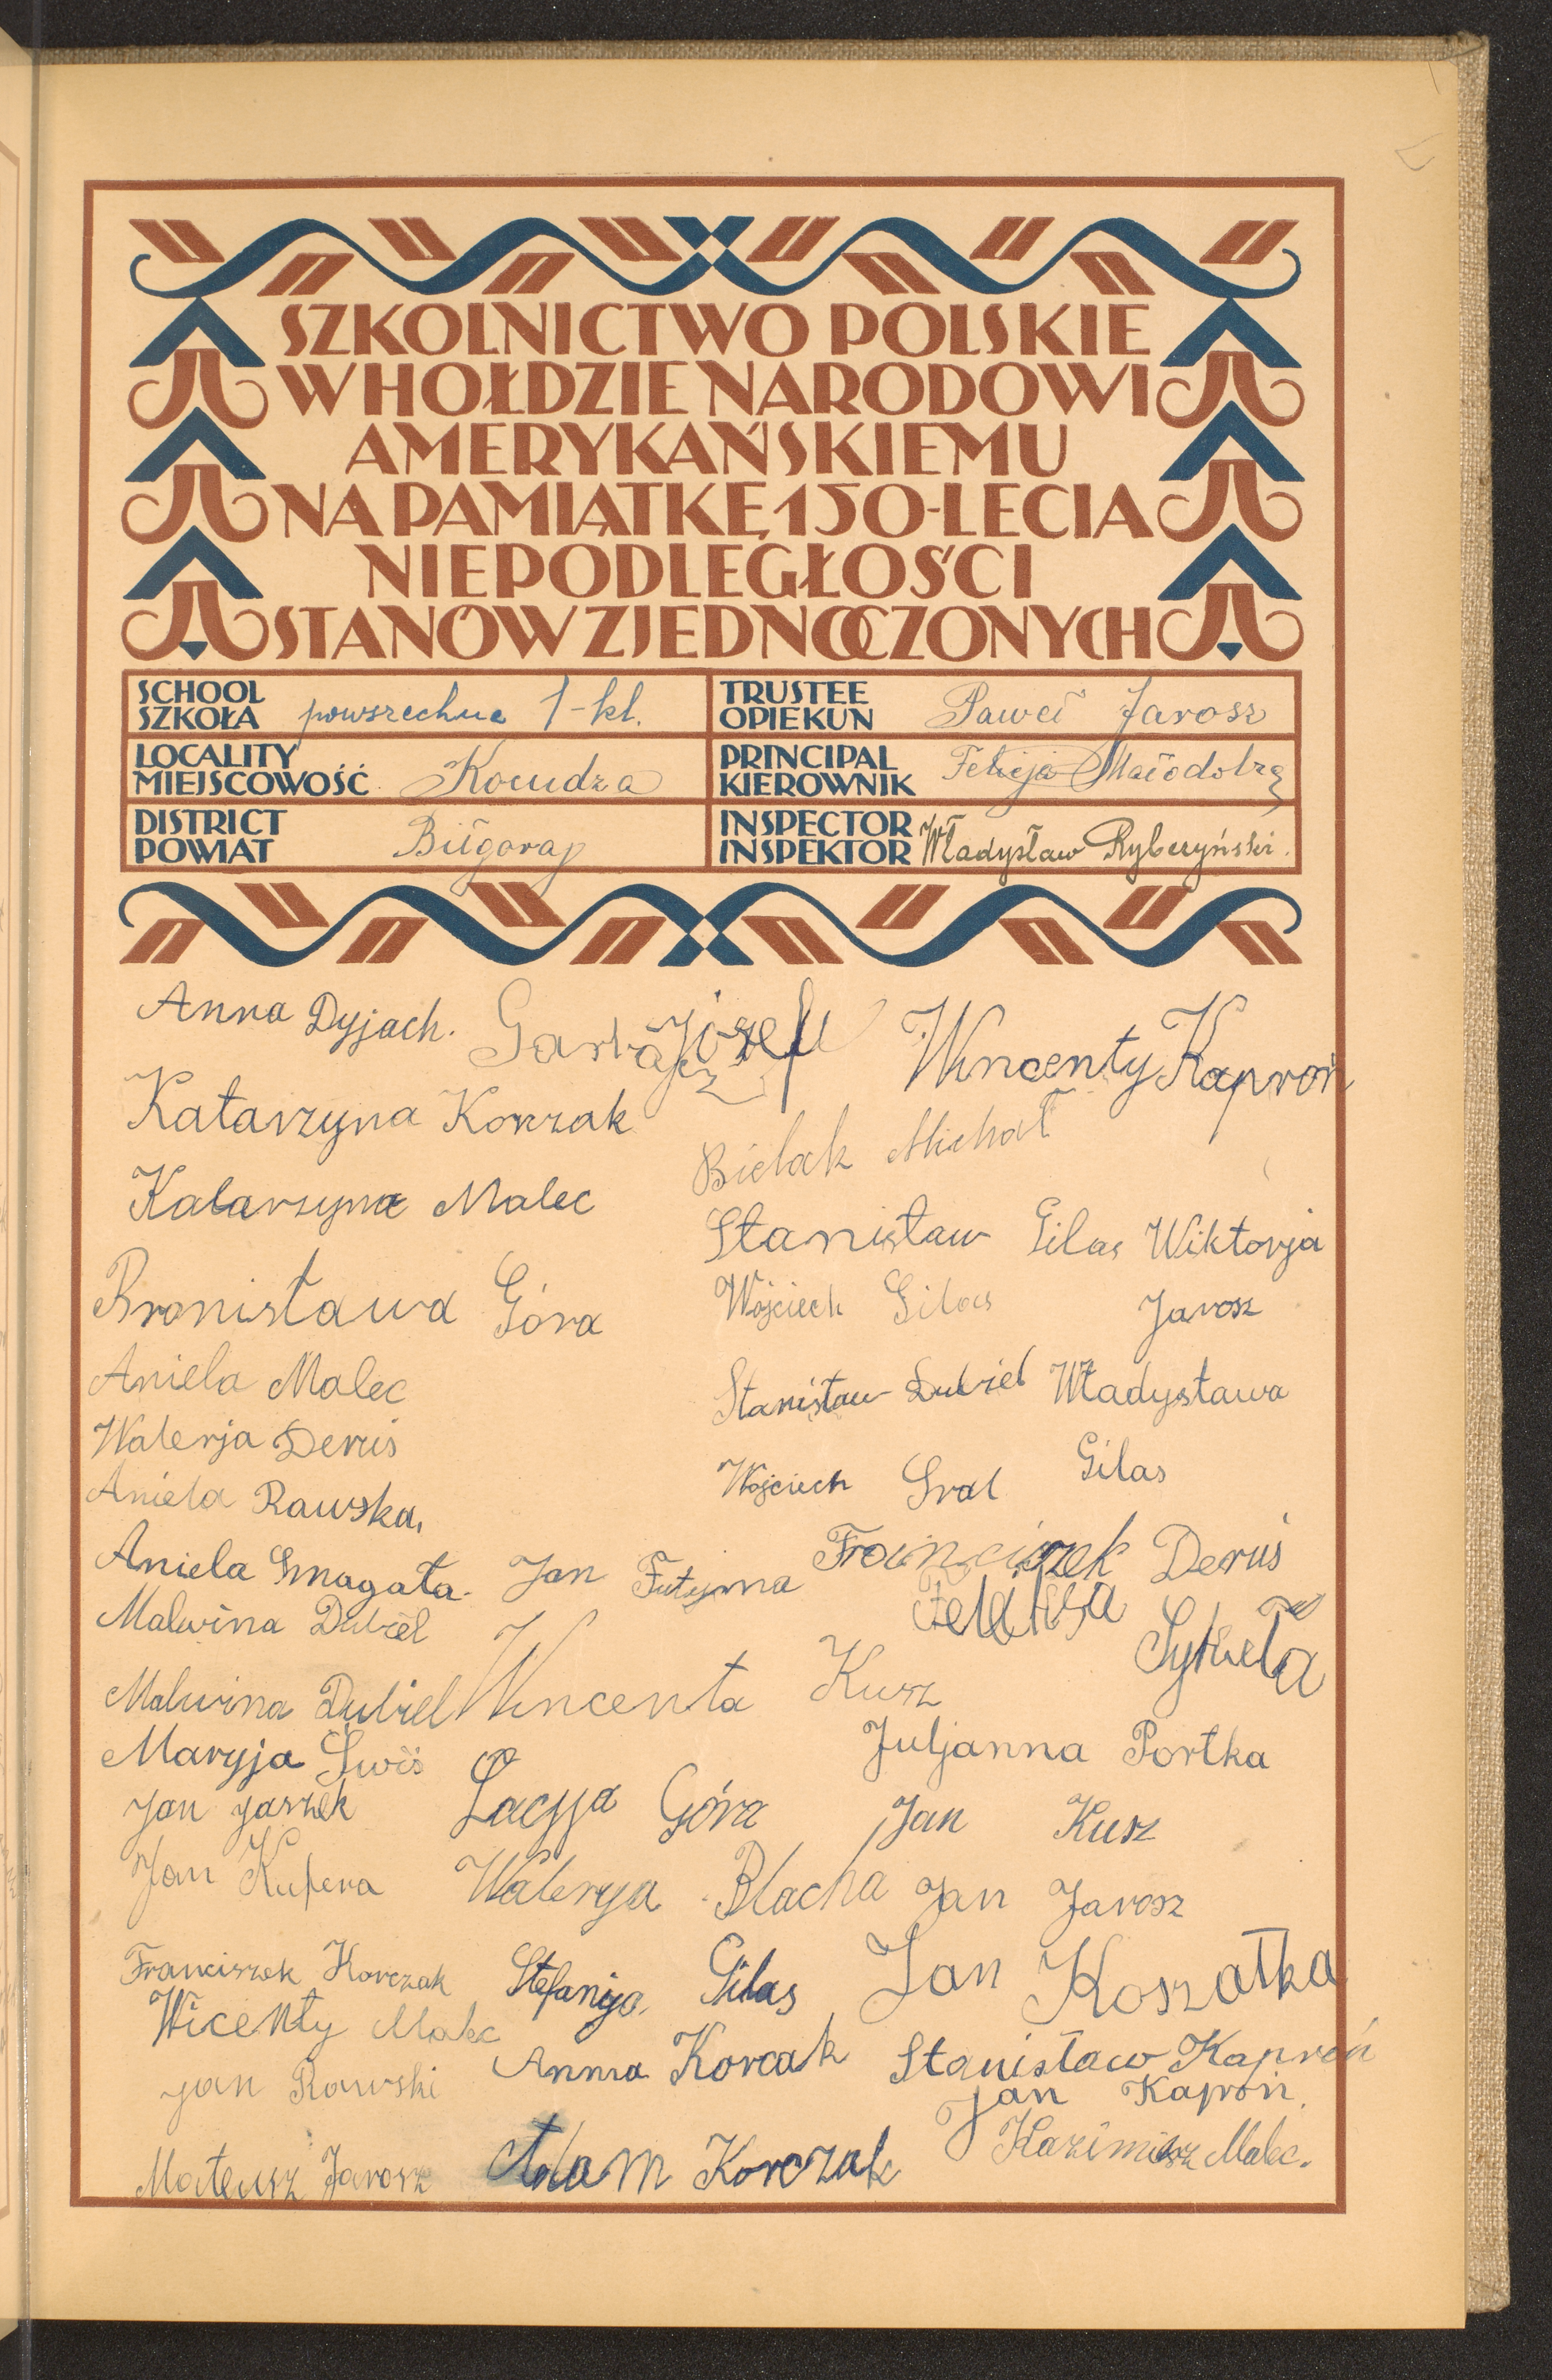 SZKOLNICTWO POLSKIE
W HOŁDZIE NARODOWI
AMERYKAŃSKIEMU
NA PAMIĄTKĘ 150-LECIA
NIEPODLEGŁOŚCI
STANÓW ZJEDNOCZONYCH
SCHOOL
SZKOŁA powszechna 1-kl.
TRUSTEE
OPIEKUN Paweł Jarosz
LOCALITY
MIEJSCOWOŚĆ Kocudza
PRINCIPAL
KIEROWNIK Felicja Małodobrą
DISTRICT
POWIAT Biłgoraj
INSPECTOR
INSPEKTOR Władysław Rybczyński.
Anna Dyjach.
Józef
Wincenty Kaproń
Katarzyna Korczak
Bielak Michał
Katarzyna Malec
Stanisław Gilas
Wiktorja
Jarosz
Bronisława Góra
Wojciech Gilas
Aniela Malec
Stanisław Dubiel
Władysława
Gilas
Walerja Deruś
Wojciech Gral
Aniela Rawska.
Franciszek Deruś
Aniela Smagała.
Jan Futyma
Feliksa
Sykała
Malwina Dubiel
Malwina Dubiel
Wincenta Kusz
Juljanna Portka
Maryja Świś
Jan Jaszek
Łacyja Góra
Jan Kusz
Jan Kufera
Walerya Blacha
Jan Jarosz
Franciszek Korczak
Stefanija Gilas
Jan Koszałka
Wicenty Malec
Anna Korcak
Stanisław Kaproń
Jan Rawski
Jan Kaproń.
Kazimierz Malec.
Mateusz Jarosz
Adam Korczak